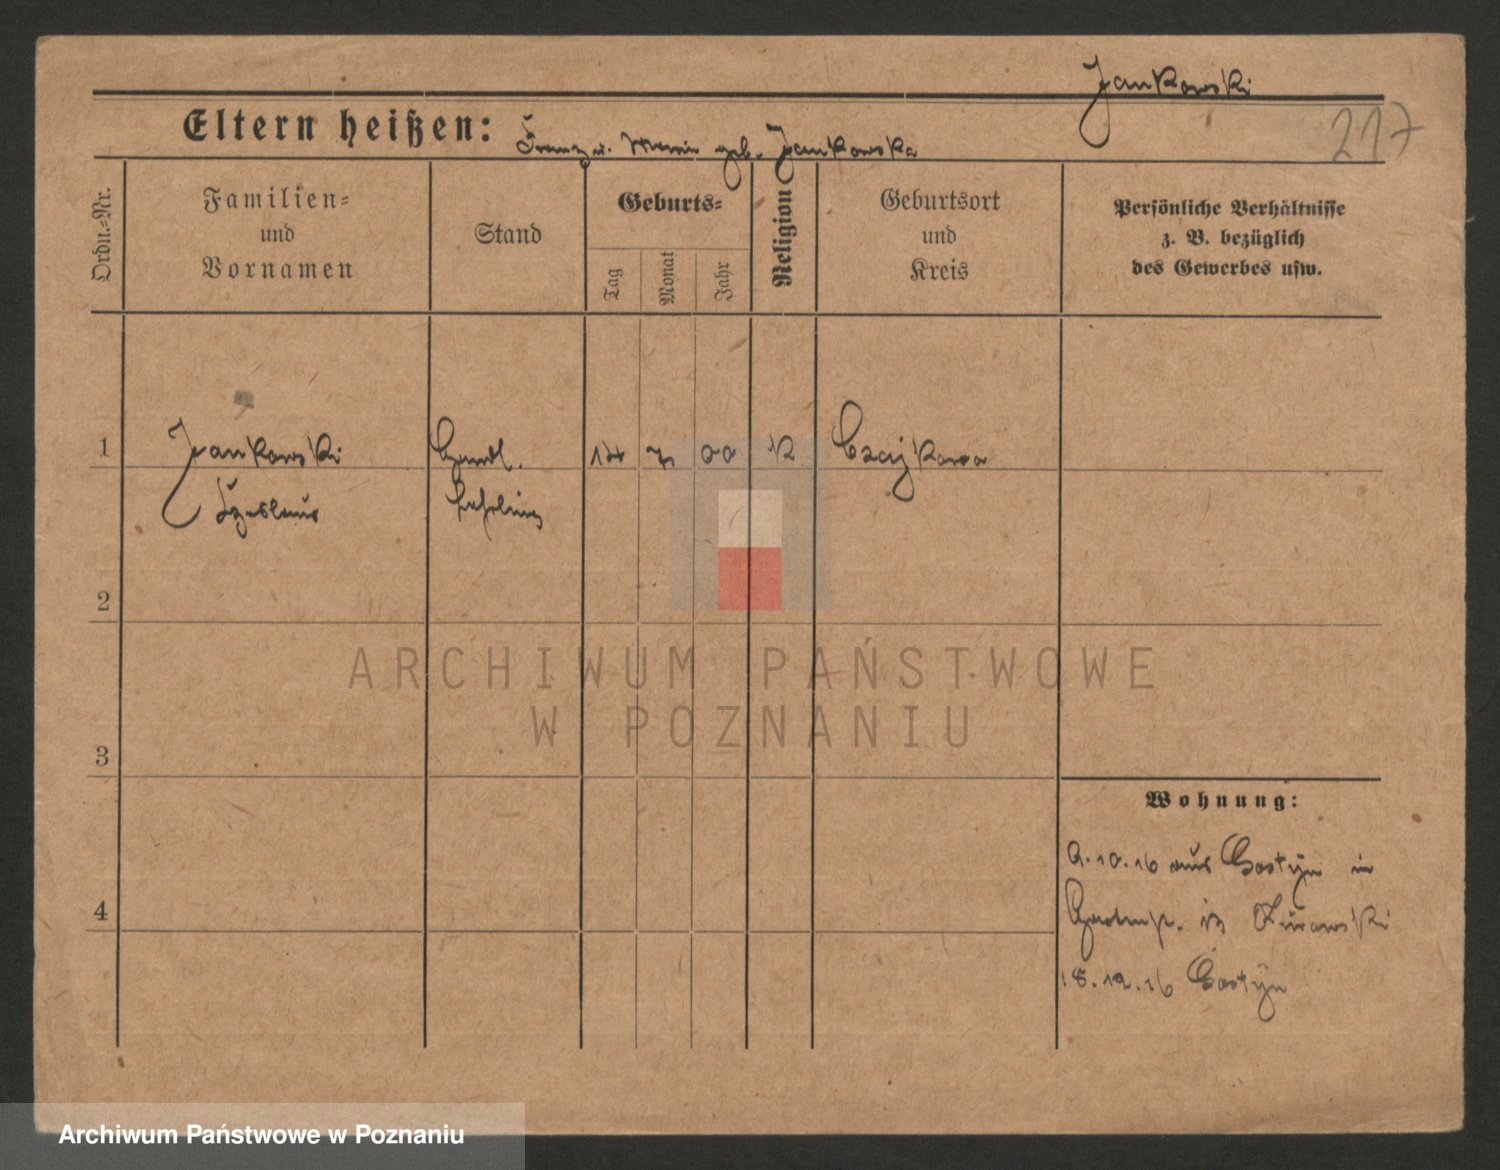 Jankowski
217
Eltern heißen: Franz u. Maria geb. Jankowska
Ordn.-Nr.
Familien-
und
Vornamen
Stand
Geburts-
Tag
Monat
Jahr
Religion
Geburtsort
und
Kreis
Persönliche Verhältnisse
z. B. bezüglich
des Gewerbes usw.
1
Jankowski
Handl.
7
00
K
Czajkowo
Lehrling
2
ARCHIWUM PAŃSTWOWE
W POZNANIU
3
Wohnung:
9.10.16 aus Gostyn in
4
18.12.16 Gostyn
Archiwum Państwowe w Poznaniu